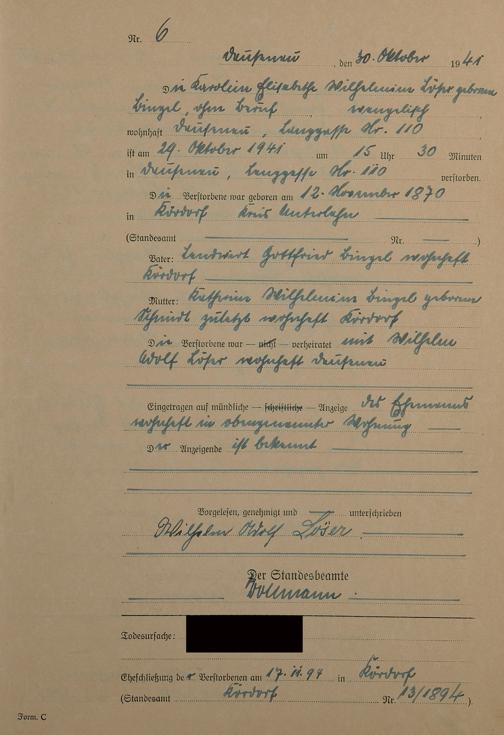 Nr. 6
Dausenau, den 30. Oktober 1941
Die Karoline Elisabethe Wilhelmine Löser geborene
Bingel, ohne Beruf evangelisch
wohnhaft Dausenau, Langgasse Nr. 110
ist am 29. Oktober 1941 um 15 Uhr 30 Minuten
in Dausenau, Langgasse Nr. 110 verstorben.
Die Verstorbene war geboren am 12. November 1870
in Kördorf Kreis Unterlahn
(Standesamt Nr. )
Vater: Landwirt Gottfried Bingel wohnhaft
Kördorf
Mutter: Katharine Wilhelmine Bingel geborene
Schmidt zuletzt wohnhaft Kördorf
Die Verstorbene war — nicht — verheiratet mit Wilhelm
Adolf Löser wohnhaft Dausenau
Eingetragen auf mündliche — schriftliche — Anzeige des Ehemanns
wohnhaft in obengenannter Wohnung
Der Anzeigende ist bekannt
Vorgelesen, genehmigt und unterschrieben
Wilhelm Adolf Löser.
Der Standesbeamte
Todesursache:
Eheschließung der Verstorbenen am 17.11.94 in Kördorf
(Standesamt Kördorf Nr. 13/1894).
Form. C